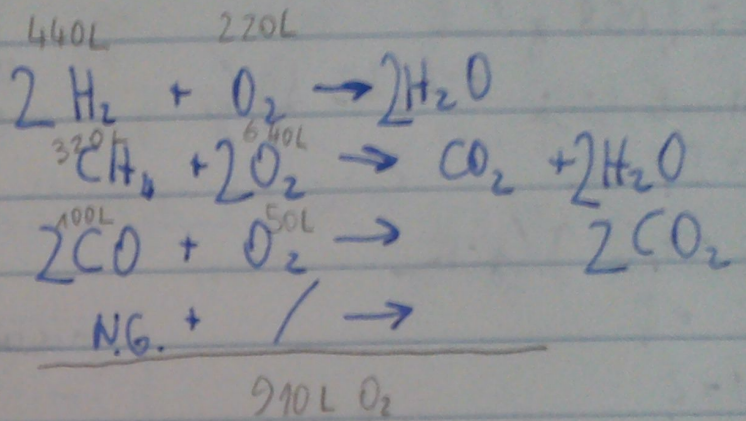 440L 220L
2 H₂ + O₂ → 2H₂O
320L 640L
CH₄ + 2O₂ → CO₂ + 2H₂O
100L 50L
2CO + O₂ → 2CO₂
N.G. + / →
910L O₂